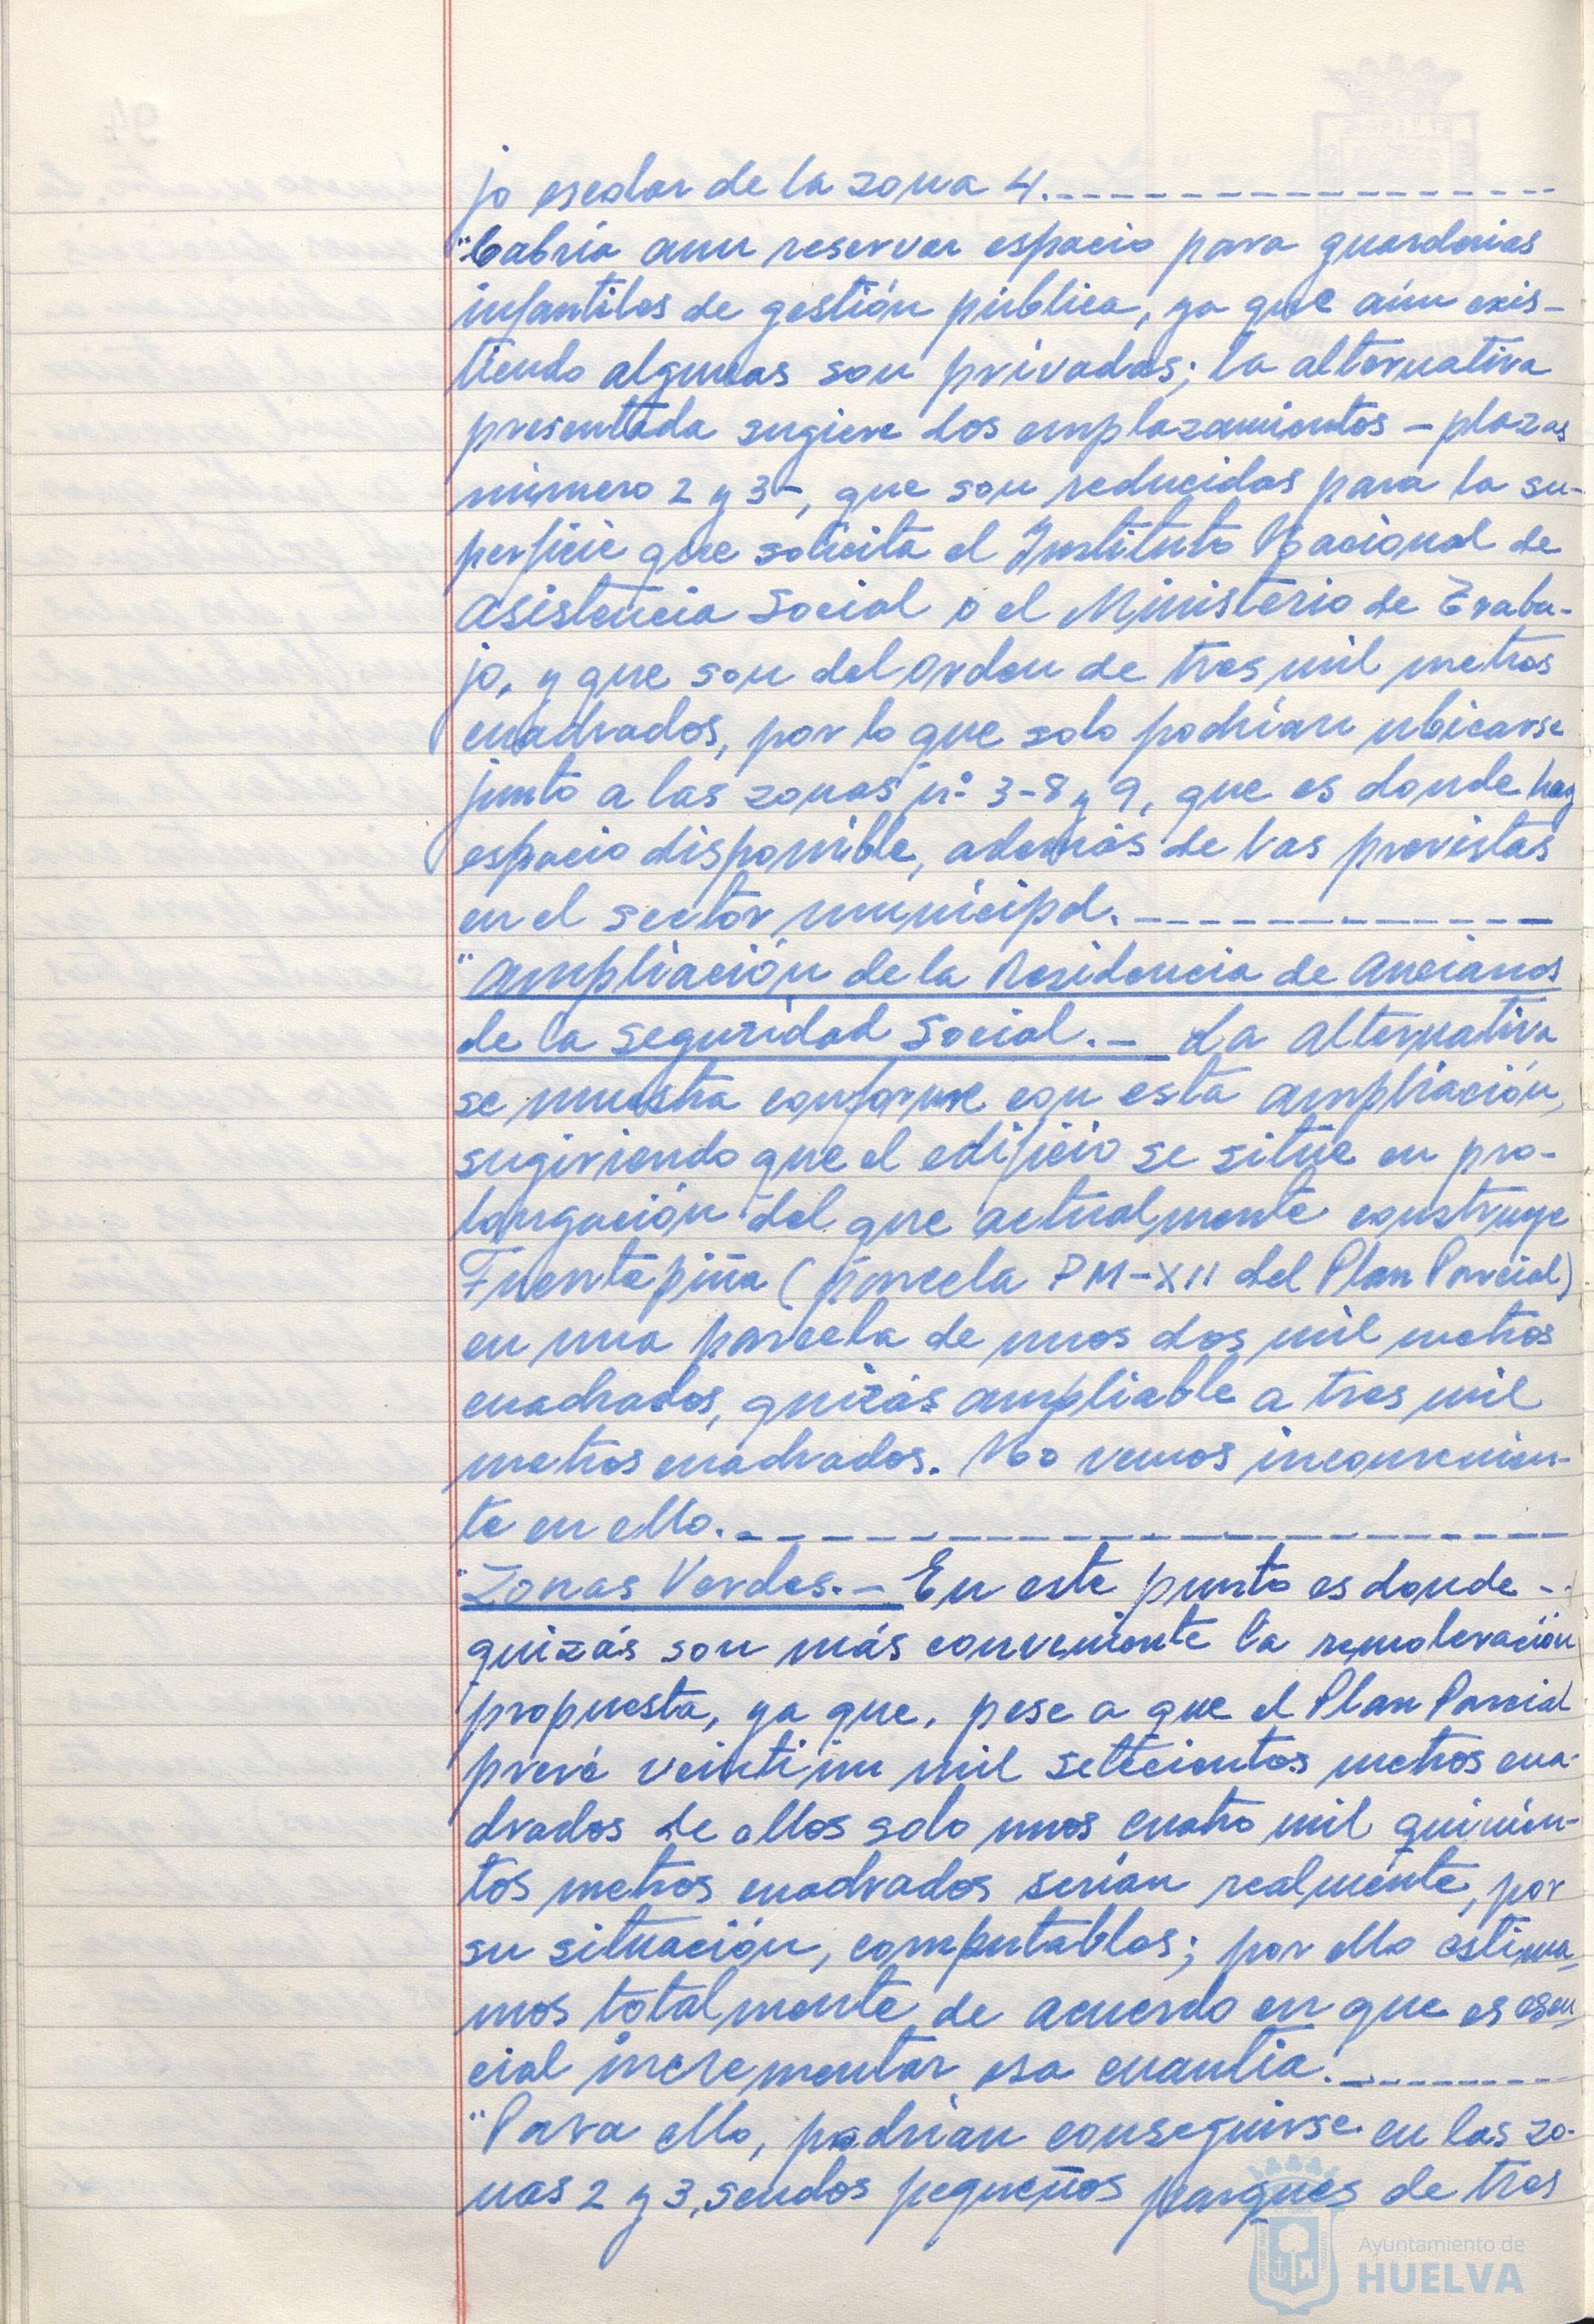 jo escolar de la zona 4.----------------
"Cabria aun reservar espacio para guarderias
infantiles de gestión pública, ya que aún exis-
tiendo algunas son privadas; la alternativa
presentada sugiere dos emplazamientos - plazas
número 2 y 3-, que son reducidas para la su-
perficie que solicita el Instituto Nacional de
Asistencia Social o el Ministerio de Traba-
jo, y que son del orden de tres mil metros
cuadrados, por lo que solo podrían ubicarse
junto a las zonas nº 3-8 y 9, que es donde hay
espacio disponible, además de las previstas
en el sector municipal.-------------
"Ampliación de la Residencia de Ancianos
de la Seguridad Social.- La alternativa
se muestra conforme con esta ampliación,
sugiriendo que el edificio se situe en pro-
longación del que actualmente construye
Fuentepiña (parcela PM-XII del Plan Parcial)
en una parcela de unos dos mil metros
cuadrados, quizás ampliable a tres mil
metros cuadrados. No vemos inconvenien-
te en ello.--------------------
"Zonas Verdes.- En este punto es donde -
quizás son más conveniente la remodelación
propuesta, ya que, pese a que el Plan Parcial
prevé veintiun mil setecientos metros cua-
drados de ellos solo unos cuatro mil quinien-
tos metros cuadrados serían realmente, por
su situación, computables; por ello estima-
mos totalmente de acuerdo en que es esen-
cial incrementar esa cuantia.----------
"Para ello, podrían conseguirse en las zo-
nas 2 y 3, sendos pequeños parques de tres
Ayuntamiento de
HUELVA